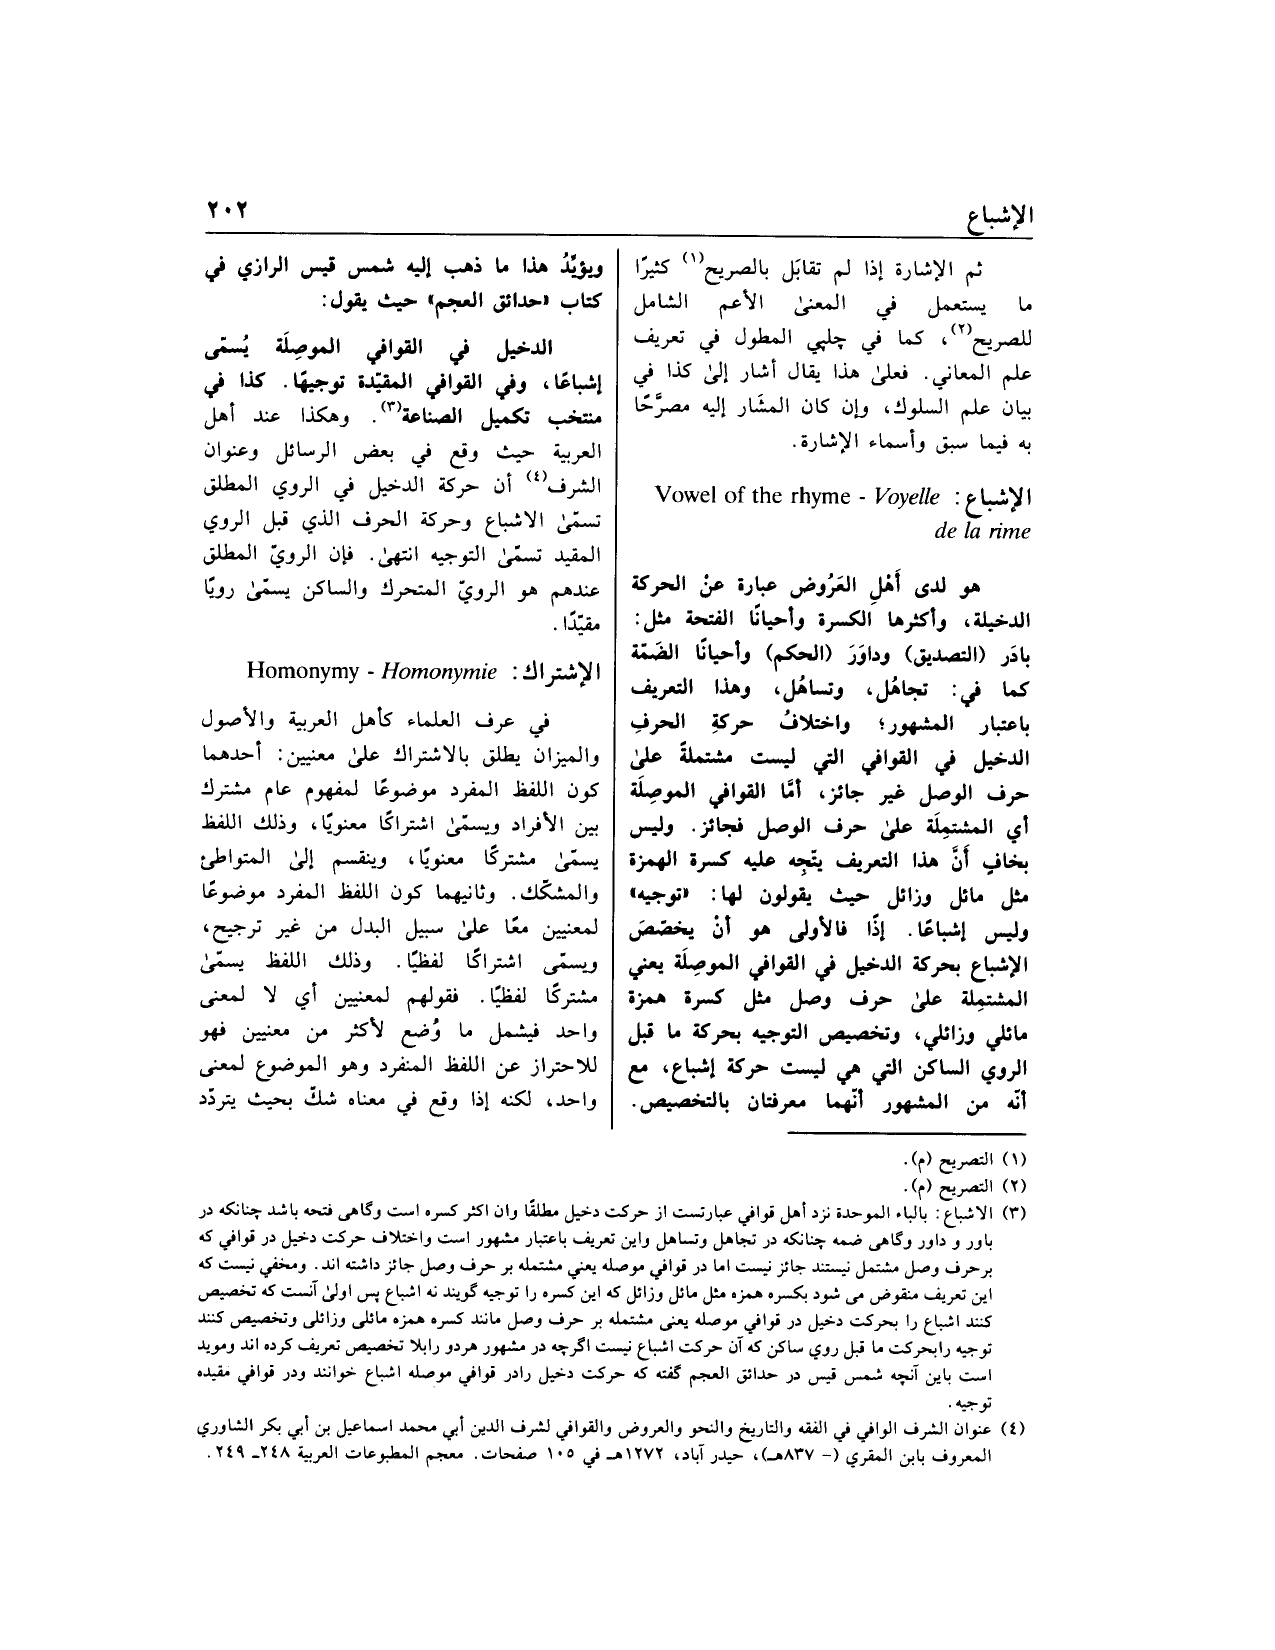 الإشباع
٢٠٢
ثم الإشارة إذا لم تقابَل بالصريح(١) كثيرًا
ما يستعمل في المعنىٰ الأعم الشامل
للصريح(٢)، كما في چلپي المطول في تعريف
علم المعاني. فعلىٰ هذا يقال أشار إلىٰ كذا في
بيان علم السلوك، وإن كان المشَار إليه مصرَّحًا
به فيما سبق وأسماء الإشارة.
الإشباع: Vowel of the rhyme - Voyelle
de la rime
هو لدى أَهْلِ العَرُوض عبارة عنْ الحركة
الدخيلة، وأكثرها الكسرة وأحيانًا الفتحة مثل:
بادَر (التصديق) وداوَرَ (الحكم) وأحيانًا الضَمّة
كما في: تجاهُل، وتساهُل، وهذا التعريف
باعتبار المشهور؛ واختلافُ حركةِ الحرفِ
الدخيل في القوافي التي ليست مشتملةً علىٰ
حرف الوصل غير جائز، أمَّا القوافي الموصِلَة
أي المشتمِلَة علىٰ حرف الوصل فجائز. وليس
بخافٍ أَنَّ هذا التعريف يتّجِه عليه كسرة الهمزة
مثل مائل وزائل حيث يقولون لها: «توجيه»
وليس إشباعًا. إذًا فالأولى هو أنْ يخصّصَ
الإشباع بحركة الدخيل في القوافي الموصِلَة يعني
المشتمِلة علىٰ حرف وصل مثل كسرة همزة
مائلي وزائلي، وتخصيص التوجيه بحركة ما قبل
الروي الساكن التي هي ليست حركة إشباع، مع
أنّه من المشهور أنّهما معرفتان بالتخصيص.
ويؤيِّدُ هذا ما ذهب إليه شمس قيس الرازي في
كتاب «حدائق العجم» حيث يقول:
الدخيل في القوافي الموصِلَة يُسمّى
إشباعًا، وفي القوافي المقيّدة توجيهًا. كذا في
منتخب تكميل الصناعة(٣). وهكذا عند أهل
العربية حيث وقع في بعض الرسائل وعنوان
الشرف(٤) أن حركة الدخيل في الروي المطلق
تسمّىٰ الاشباع وحركة الحرف الذي قبل الروي
المقيد تسمّىٰ التوجيه انتهىٰ. فإن الرويّ المطلق
عندهم هو الرويّ المتحرك والساكن يسمّىٰ رويًا
مقيّدًا.
الإشتراك: Homonymy - Homonymie
في عرف العلماء كأهل العربية والأصول
والميزان يطلق بالاشتراك علىٰ معنيين: أحدهما
كون اللفظ المفرد موضوعًا لمفهوم عام مشترك
بين الأفراد ويسمّىٰ اشتراكًا معنويًا، وذلك اللفظ
يسمّىٰ مشتركًا معنويًا، وينقسم إلىٰ المتواطئ
والمشكّك. وثانيهما كون اللفظ المفرد موضوعًا
لمعنيين معًا علىٰ سبيل البدل من غير ترجيح،
ويسمّى اشتراكًا لفظيًا. وذلك اللفظ يسمّىٰ
مشتركًا لفظيًا. فقولهم لمعنيين أي لا لمعنى
واحد فيشمل ما وُضع لأكثر من معنيين فهو
للاحتراز عن اللفظ المنفرد وهو الموضوع لمعنى
واحد، لكنه إذا وقع في معناه شكّ بحيث يتردّد
(١) التصريح (م).
(٢) التصريح (م).
(٣) الاشباع: بالباء الموحدة نزد أهل قوافي عبارتست از حركت دخيل مطلقًا وان اكثر كسره است وگاهى فتحه باشد چنانكه در
باور و داور وگاهى ضمه چنانكه در تجاهل وتساهل واين تعريف باعتبار مشهور است واختلاف حركت دخيل در قوافي كه
برحرف وصل مشتمل نيستند جائز نيست اما در قوافي موصله يعني مشتمله بر حرف وصل جائز داشته اند. ومخفي نيست كه
اين تعريف منقوض مى شود بكسره همزه مثل مائل وزائل كه اين كسره را توجيه گويند نه اشباع پس اولىٰ آنست كه تخصيص
كنند اشباع را بحركت دخيل در قوافي موصله يعنى مشتمله بر حرف وصل مانند كسره همزه مائلى وزائلى وتخصيص كنند
توجيه رابحركت ما قبل روي ساكن كه آن حركت اشباع نيست اگرچه در مشهور هردو رابلا تخصيص تعريف كرده اند ومويد
است باين آنچه شمس قيس در حدائق العجم گفته كه حركت دخيل رادر قوافي موصله اشباع خوانند ودر قوافي مقيده
توجيه.
(٤) عنوان الشرف الوافي في الفقه والتاريخ والنحو والعروض والقوافي لشرف الدين أبي محمد اسماعيل بن أبي بكر الشاوري
المعروف بابن المقري (- ٨٣٧هـ)، حيدر آباد، ١٢٧٢هـ في ١٠٥ صفحات. معجم المطبوعات العربية ٢٤٨ـ ٢٤٩.